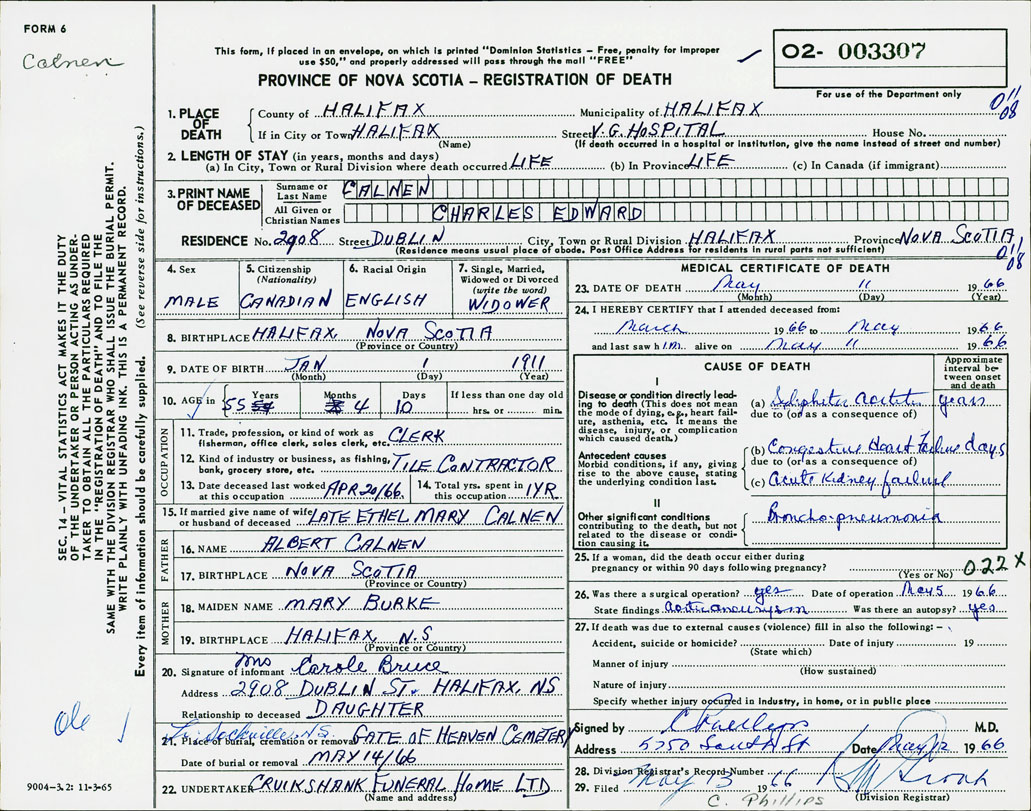 FORM 6
Calnen
This form, if placed in an envelope, on which is printed "Dominion Statistics – Free, penalty for improper
use $50," and properly addressed will pass through the mail "FREE"
PROVINCE OF NOVA SCOTIA – REGISTRATION OF DEATH
02- 003307
For use of the Department only
011
08
SEC. 14 – VITAL STATISTICS ACT MAKES IT THE DUTY
OF THE UNDERTAKER OR PERSON ACTING AS UNDER-
TAKER TO OBTAIN ALL THE PARTICULARS REQUIRED
IN THE "REGISTRATION OF DEATH" AND TO FILE THE
SAME WITH THE DIVISION REGISTRAR WHO SHALL ISSUE THE BURIAL PERMIT.
WRITE PLAINLY WITH UNFADING INK. THIS IS A PERMANENT RECORD.
Every item of information should be carefully supplied. (See reverse side for instructions.)
1. PLACE OF DEATH County of HALIFAX Municipality of HALIFAX
If in City or Town HALIFAX Street V.G. HOSPITAL House No.
(Name) (If death occurred in a hospital or institution, give the name instead of street and number)
2. LENGTH OF STAY (in years, months and days)
(a) In City, Town or Rural Division where death occurred LIFE (b) In Province LIFE (c) In Canada (if immigrant)
3. PRINT NAME OF DECEASED Surname or Last Name CALNEN
All Given or Christian Names CHARLES EDWARD
RESIDENCE No. 2908 Street DUBLIN City, Town or Rural Division HALIFAX Province NOVA SCOTIA
(Residence means usual place of abode. Post Office Address for residents in rural parts not sufficient)
011
08
4. Sex 5. Citizenship (Nationality) 6. Racial Origin 7. Single, Married, Widowed or Divorced (write the word)
MALE CANADIAN ENGLISH WIDOWER
8. BIRTHPLACE HALIFAX NOVA SCOTIA
(Province or Country)
9. DATE OF BIRTH JAN 1 1911
(Month) (Day) (Year)
10. AGE in Years Months Days If less than one day old
55 54 4 10 hrs. or min.
OCCUPATION
11. Trade, profession, or kind of work as
fishermen, office clerk, sales clerk, etc. CLERK
12. Kind of industry or business, as fishing,
bank, grocery store, etc. TILE CONTRACTOR
13. Date deceased last worked at this occupation APR 20/66 14. Total yrs. spent in this occupation 1 YR.
15. If married give name of wife
or husband of deceased LATE ETHEL MARY CALNEN
FATHER
16. NAME ALBERT CALNEN
17. BIRTHPLACE NOVA SCOTIA
(Province or Country)
MOTHER
18. MAIDEN NAME MARY BURKE
19. BIRTHPLACE HALIFAX, N.S.
(Province or Country)
20. Signature of informant Mrs Carole Bruce
Address 2908 DUBLIN ST. HALIFAX NS
Relationship to deceased DAUGHTER
Sackville, N.S.
21. Place of burial, cremation or removal GATE OF HEAVEN CEMETERY
Date of burial or removal MAY 14/66
22. UNDERTAKER CRUIKSHANK FUNERAL HOME LTD
(Name and address)
9004–3.2: 11-3-65
MEDICAL CERTIFICATE OF DEATH
23. DATE OF DEATH May 11 1966
(Month) (Day) (Year)
24. I HEREBY CERTIFY that I attended deceased from:
March 1966 to May 1966
and last saw him alive on May 11 1966
CAUSE OF DEATH Approximate interval between onset and death
I
Disease or condition directly lead-
ing to death (This does not mean
the mode of dying, e.g., heart fail-
ure, asthenia, etc. It means the
disease, injury, or complication
which caused death.)
(a) Syphilitic Aortitis years
due to (or as a consequence of)
Antecedent causes
Morbid conditions, if any, giving
rise to the above cause, stating
the underlying condition last.
(b) Congestive Heart Failure days
due to (or as a consequence of)
(c) Acute Kidney failure
II
Other significant conditions
contributing to the death, but not
related to the disease or condi-
tion causing it.
Broncho-pneumonia
25. If a woman, did the death occur either during
pregnancy or within 90 days following pregnancy?
(Yes or No)
022 X
26. Was there a surgical operation? yes Date of operation May 5 1966
State findings Aortic aneurysm Was there an autopsy? yes
27. If death was due to external causes (violence) fill in also the following: –
Accident, suicide or homicide? Date of injury 19
(State which)
Manner of injury
(How sustained)
Nature of injury
Specify whether injury occurred in industry, in home, or in public place
Signed by M.D.
Address 5750 South St Date May 12 1966
28. Division Registrar's Record Number
29. Filed May 13 1966
(Division Registrar)
C. PHILLIPS